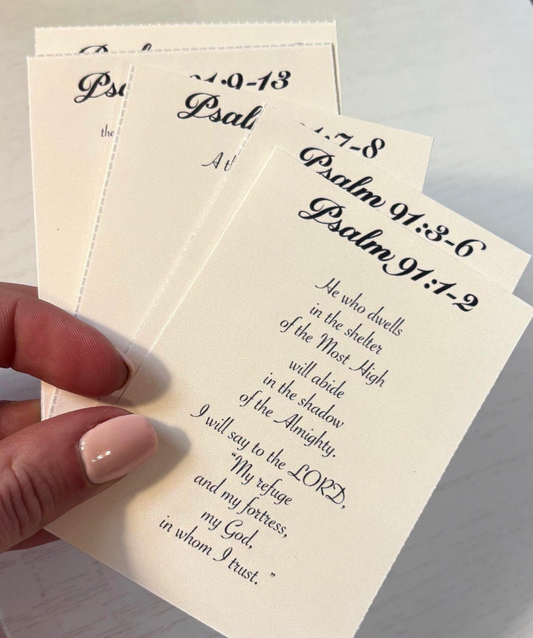 91:9-13
the
Psalm
7-8
A
Psalm 91:3-6
Psalm 91:1-2
He who dwells
in the shelter
of the Most High
will abide
in the shadow
of the Almighty.
I will say to the LORD,
“My refuge
and my fortress,
my God,
in whom I trust. ”